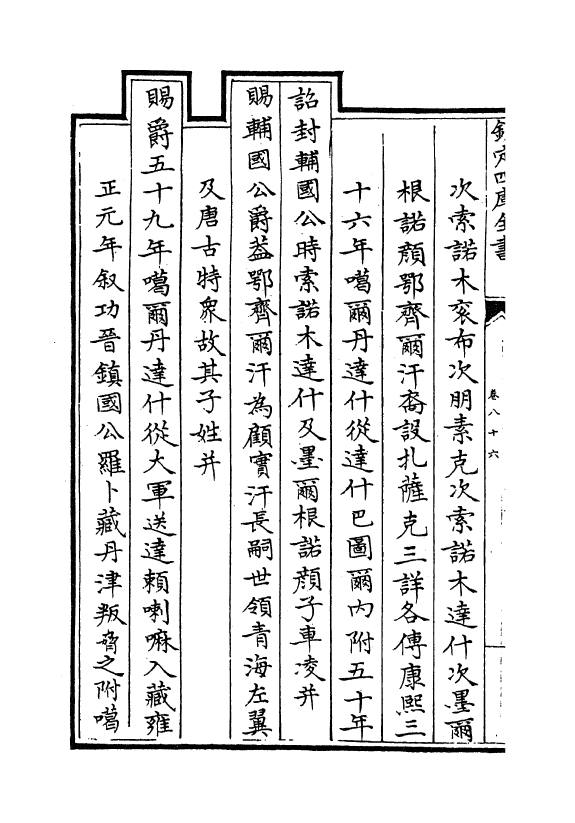 欽定四庫全書
卷八十六
次索諾木衮布次朋素克次索諾木達什次墨爾
根諾顔鄂齊爾汗裔設扎薩克三詳各傳康熙三
十六年噶爾丹達什從達什巴圖爾内附五十年
詔封輔國公時索諾木達什及墨爾根諾顔子車凌并
賜輔國公爵葢鄂齊爾汗為顧實汗長嗣世領青海左翼
及唐古特衆故其子姓并
賜爵五十九年噶爾丹達什從大軍送達賴喇嘛入藏雍
正元年叙功晉鎮國公羅卜藏丹津叛脅之附噶